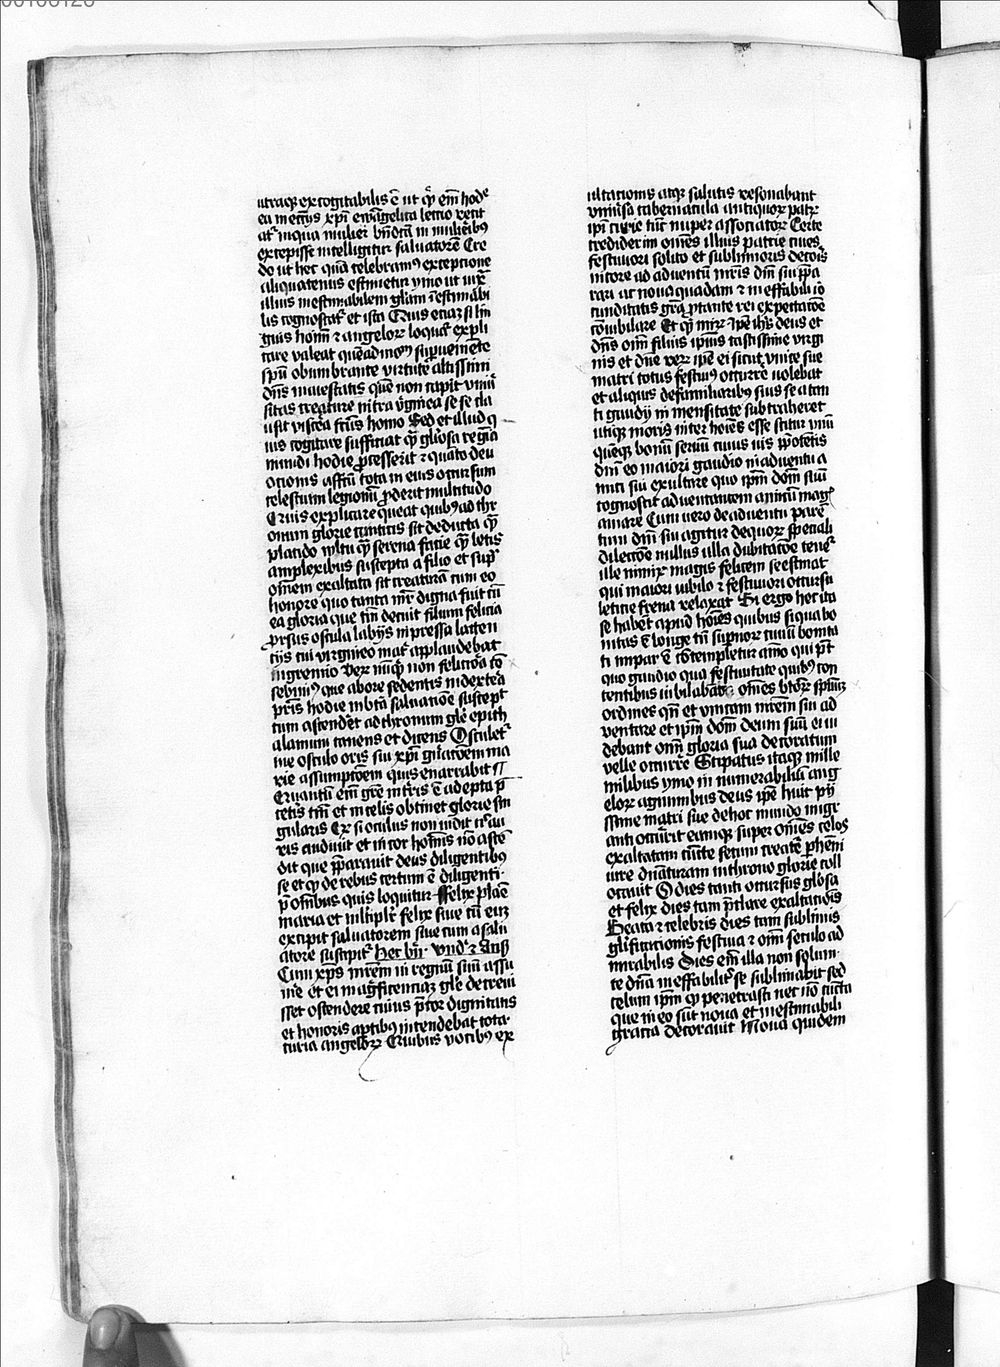 utraqꝫ excogitabilis ē ut qͥ em̄ hodͤ
ea menꝰ xp̄i ewāgelica lectio recit
atͬ inqua mulier bn̄dcā in mulieribꝰ
excepisse intelligitur saluatorē Cre
do ut hec quā celebramꝰ exceptione
aliquatenus estimetur ymo ut iux̄
illius inestimabilem gl̄iam īestimabi
lis cognoscatͬ et ista Cuius etiaꝫ si lin
guis homī ⁊ angeloꝝ loquatͬ expli
care valeat quēadmoꝫ supueniēte
spū obumbrante virtute altissimi
dn̄s maiestatis quē non capit vniū
sitas creature intra v̄ginea se se cla
usit visc̄a fcūs homo Sed et illud qͥ
ius cogitare sufficiat qͣ gl̄osa regīa
mundi hodie ꝓcesserit ⁊ quāto deu
ocionis affcū tota in eius occursum
celestium legionū ꝓdierit multitudo
Cuius explicare queat quibꝰ ad thr
onum glorie canticis sit deducta qͣ
placido vltu qͣ serena facie qͣ letis
amplexibus suscepta a filio et supͬ
om̄em exaltata sit creaturā cum eo
honore quo tanta mr̄ digna fuit cū
ea gloria que tm̄ decuit filium felicia
ꝓrsus oscula labijs inpressa lacten
tis cui virgineo matͬ applaudebat
in gremio Veꝝ nūqͥ non felicioͬa cō
sebimꝰ que abore sedentis in dextera
pr̄is hodie in btā salutacōe suscepͭ
cum ascendͤet ad thronum gl̄e epith
alamium canens et dicens Osculetͬ
me osculo oris sui xp̄i gn̄acōem ma
rie assumptōem quis enarrabit
Cuantū em̄ gr̄e in tr̄is ē adepta p̄
ceteris tm̄ et in celis obtinet glorie sin
gularis Qꝫ si oculus non uidit nͨ au
ris audiuit et in cor hoīs nō ascē
dit que p̄parauit deus diligentibꝰ
se et qͥ de rebus certum ē diligenti
p̄ om̄ibus quis loquitur Felix plane
maria et ml̄tiplr̄ felix siue cū eiꝫ
excipit saluatorem siue cum a salu
atore suscipitͬ Hec bn̄ Vndͤ ⁊ Ans̄
Cum xp̄s mr̄em in regnū suū assu
me et ei magnificenciaꝫ gl̄e decreui
sset ostendere cuius p̄cor dignitatis
et honoris aptibꝰ intendebat tota
curia angeloꝝ Cuibus vocibꝰ ex
ultacionis atqꝫ salutis resonabant
vniūsa tabernacula antiquoꝝ patꝝ
ipī curie tūc nuper associatoꝝ Certe
crediderim om̄es illius patrie ciues
festiuiori solito et sublimioris decoīs
nitore ad aduentū mr̄is dn̄i sui p̄pa
rari ac noua quadam ⁊ ineffabili io
cunditatis gr̄a p̄tante rei expectacōe
cōiubilare Et qͥ miꝝ ⁊ ipē ihūs deus et
dn̄s om̄ filius ipīus castissime virgi
nis et dn̄e veꝝ ipē ei sicut vnice sue
matri totus festiuꝰ occurrē uolebat
et aliquis de familiaribꝰ suis se a tan
ti gaudij in mensitate subtraheret
utiqꝫ moris inter hoīes esse scitur vnū
quēqꝫ bonū seruū cuius uis p̄potētis
dn̄i eo maiori gaudio in aduentu a
mici sui exultare quo ipm̄ dom̄ suū
cognoscit aduentantem amicū magͥ
amare Cum uero de aduentu paren
tum dn̄i sui agitur de quoꝝ speciali
dilectōe nullus illa dubitacōe tenetͬ
ille nimiꝝ magis felicem se estimat
qui maiori iubilo ⁊ festiuiori occursu
leticie frena relaxat Si ergo hec ita
se habēt apud hoīes quibus si qua bo
nitas ē longe tn̄ supnoꝝ ciuiū bonita
ti impar ē cōtempletur aīo qui pͭt
quo gaudio qua festiuitate quibꝰ con
centibus iubilabāt om̄es btoꝝ sp̄muꝫ
ordines qn̄ et vnicam mr̄em sui ad
ventare et ipm̄ dom̄ deum suū ei ui
debant om̄i gloria sua decoratum
velle occurrͤe Stipatus itaqꝫ mille
milibus ymo in numerabiliū ang
eloꝝ agminibus deus ipē huic pij
ssime matri sue de hoc mundo migr
anti occurrit eamqꝫ super om̄es celos
exaltatam cūcte secum creatͤe p̄heni
iure dn̄aturam in throno glorie coll
ocauit O dies tanti occursus gl̄osa
et felix dies tam p̄clare exaltacōis
Beata ⁊ celebris dies tam sublimis
gl̄ificacionis festiua ⁊ om̄i seculo ad
mirabilis Dies em̄ illa non solum
te dn̄a ineffabilitͬ se sublimabit sed
celum ipm̄ qͥ penetrasti nec nō cūcta
que in eo sūt noua et inestimabili
gracia decorauit Noua quidem